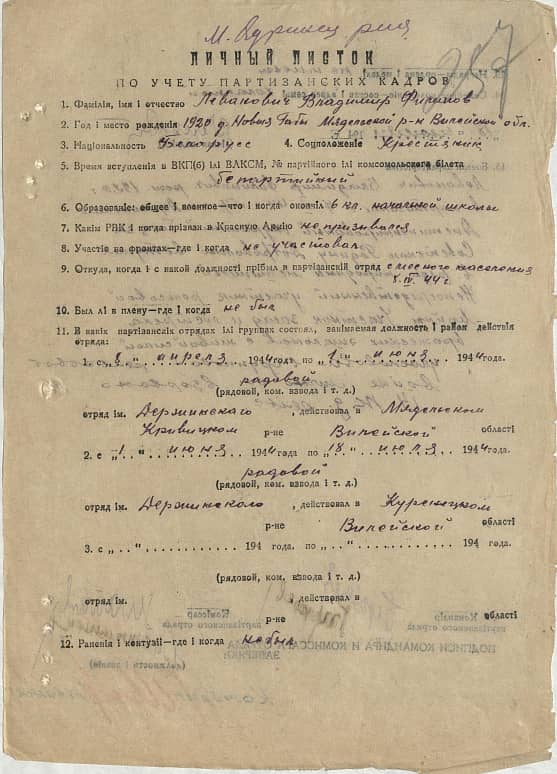 257
ЛИЧНЫЙ ЛИСТОК
ПО УЧЕТУ ПАРТИЗАНСКИХ КАДРОВ
1. Фамілія, імя і отчество Леванович Владимир Филипов
2. Год і место рождения 1920 д. Новые Габы Мядельский р-н Вилейской обл.
3. Національность Беларусс 4. Соцположение Крестяник
5. Время вступления в ВКП(б) ілі ВЛКСМ, № партійного ілі комсомольского білета
беспартийный
6. Образованіе: общее і военное—что і когда окончіл 6 кл. начальной школы
7. Какім РВК і когда прізван в Красную Армію не призывался
8. Участіе на фронтах—где і когда не участвовал
9. Откуда, когда і с какой должності прібыл в партизанскій отряд с местного населения
8.IV.44 г.
10. Был лі в плену—где і когда не был
11. В какіх партізанскіх отрядах ілі группах состоял, занімаемая должность і район действія
отряда:
1. с „8„ апреля 1944 года по „1„ июня 1944 года.
радовой
(рядовой, ком. взвода і т. д.)
отряд ім. Держинского, действовал в Мядельском
Кривицком р-не Вилейской области
2. с „1„ июня 1944 года по „18„ июля 1944 года.
радовой
(рядовой, ком. взвода і т. д.)
отряд ім. Держинского, действовал в Куренецком
р-не Вилейской області
3. с „..„ 194 года. по „..„ 194 года.
(рядовой, ком. взвода і т. д.)
отряд ім. , действовал в
р-не області
12. Раненія і контузіі—где і когда не был